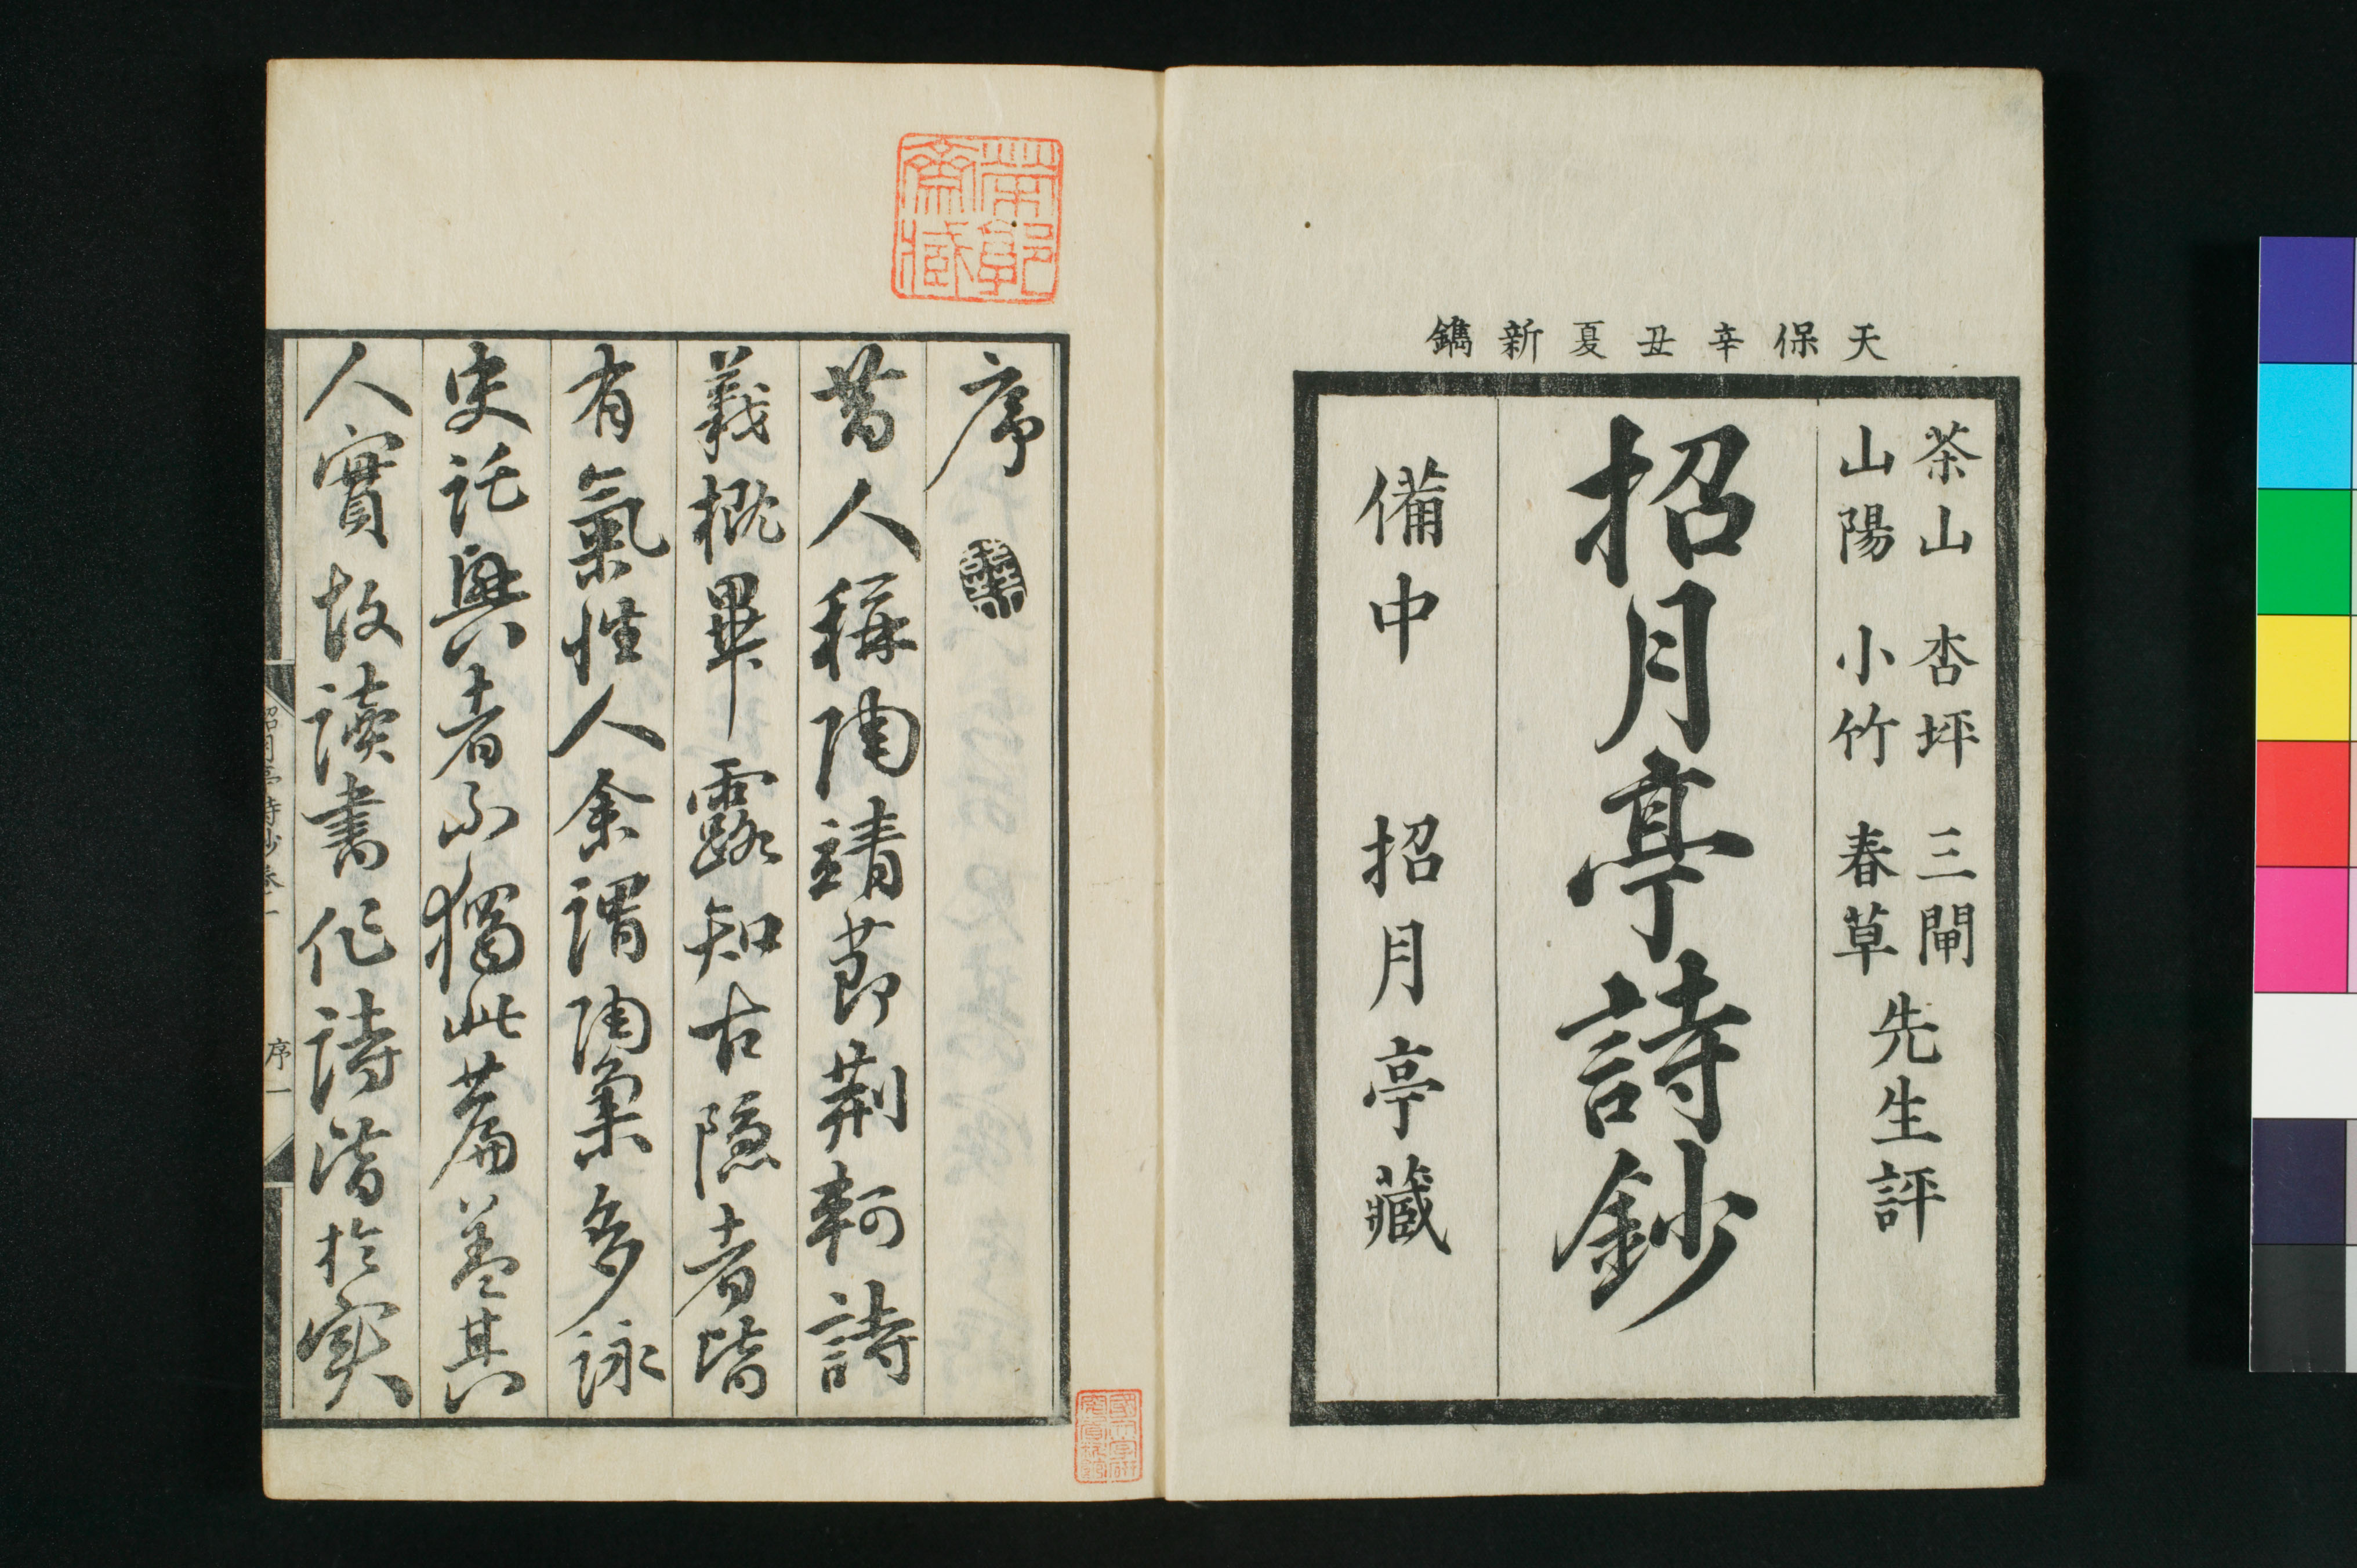 天保辛丑夏新鐫
茶山 杏坪 三閘
山陽 小竹 春草
先生評
招月亭詩鈔
備中 招月亭藏
序
昔人稱陶靖節荆軻詩
義概畢露知古隱者皆
有氣性人余謂陶集多詠
史託興者不獨此篇蓋其
人實故讀書作詩皆於実
招月亭詩鈔卷一
序一